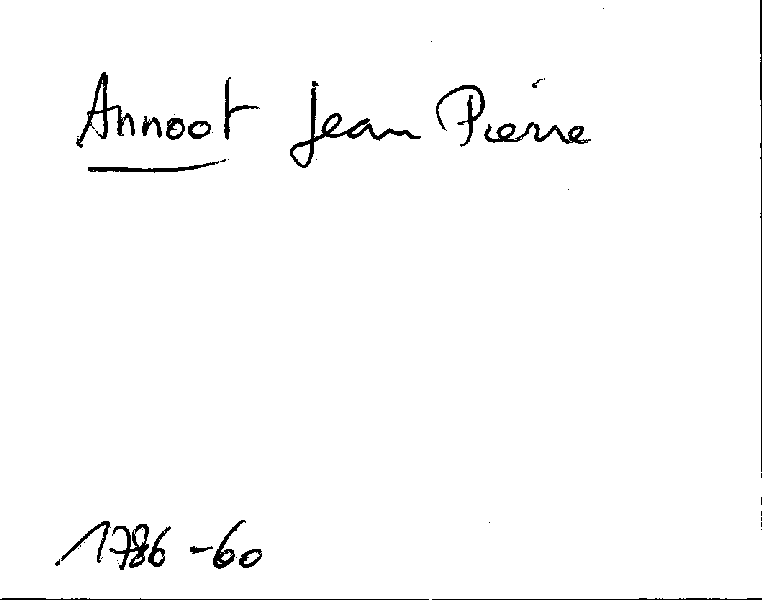 Annoot Jean Pierre
1786-60